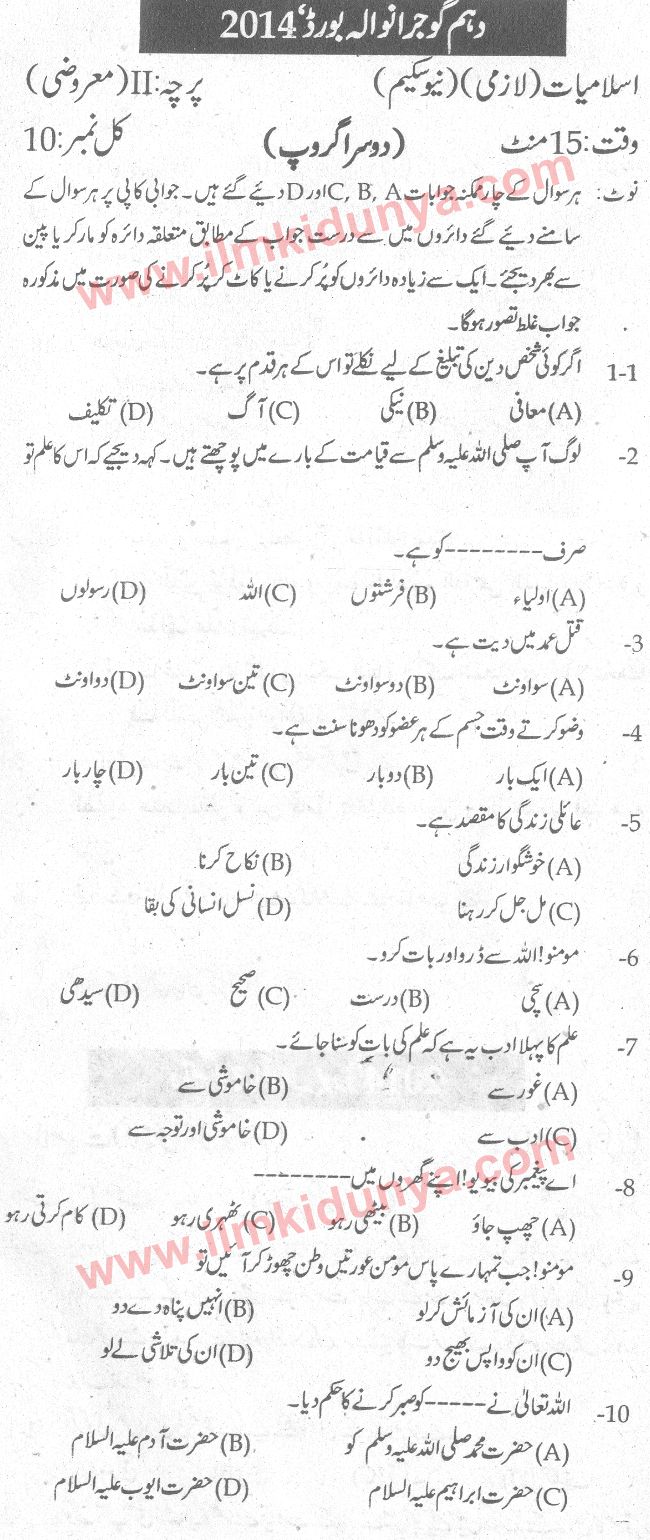 دہم گوجرانوالہ بورڈ، 2014
اسلامیات (لازمی) (نیو سکیم) پرچہ: II (معروضی)
وقت: 15 منٹ (دوسرا گروپ) کل نمبر: 10
نوٹ: ہر سوال کے چار ممکنہ جوابات C, B, A اور D دیئے گئے ہیں۔ جوابی کاپی پر ہر سوال کے
سامنے دیئے گئے دائروں میں سے درست جواب کے مطابق متعلقہ دائرہ کو مارکر یا پین
سے بھر دیجئے۔ ایک سے زیادہ دائروں کو پُر کرنے یا کاٹ کر پُر کرنے کی صورت میں مذکورہ
جواب غلط تصور ہوگا۔
1-1 اگر کوئی شخص دین کی تبلیغ کے لیے نکلے تو اس کے ہر قدم پر ہے۔
(A) معافی (B) نیکی (C) آگ (D) تکلیف
2- لوگ آپ صلی اللہ علیہ وسلم سے قیامت کے بارے میں پوچھتے ہیں۔ کہہ دیجیے کہ اس کا علم تو
صرف -------- کو ہے۔
(A) اولیاء (B) فرشتوں (C) اللہ (D) رسولوں
3- قتل عمد میں دیت ہے۔
(A) سو اونٹ (B) دو سو اونٹ (C) تین سو اونٹ (D) دو اونٹ
4- وضو کرتے وقت جسم کے ہر عضو کو دھونا سنت ہے۔
(A) ایک بار (B) دو بار (C) تین بار (D) چار بار
5- عائلی زندگی کا مقصد ہے۔
(A) خوشگوار زندگی (B) نکاح کرنا
(C) مل جل کر رہنا (D) نسل انسانی کی بقا
6- مومنو! اللہ سے ڈرو اور بات کرو۔
(A) سچی (B) درست (C) صحیح (D) سیدھی
7- علم کا پہلا ادب یہ ہے کہ علم کی بات کو سنا جائے۔
(A) غور سے (B) خاموشی سے
(C) ادب سے (D) خاموشی اور توجہ سے
8- اے پیغمبر کی بیویو! اپنے گھروں میں --------
(A) چھپ جاؤ (B) بیٹھی رہو (C) ٹھہری رہو (D) کام کرتی رہو
9- مومنو! جب تمہارے پاس مومن عورتیں وطن چھوڑ کر آئیں تو
(A) ان کی آزمائش کرلو (B) انہیں پناہ دے دو
(C) ان کو واپس بھیج دو (D) ان کی تلاشی لے لو
10- اللہ تعالیٰ نے ----- کو صبر کرنے کا حکم دیا۔
(A) حضرت محمد صلی اللہ علیہ وسلم کو (B) حضرت آدم علیہ السلام
(C) حضرت ابراہیم علیہ السلام (D) حضرت ایوب علیہ السلام
www.ilmkidunya.com
www.ilmkidunya.com